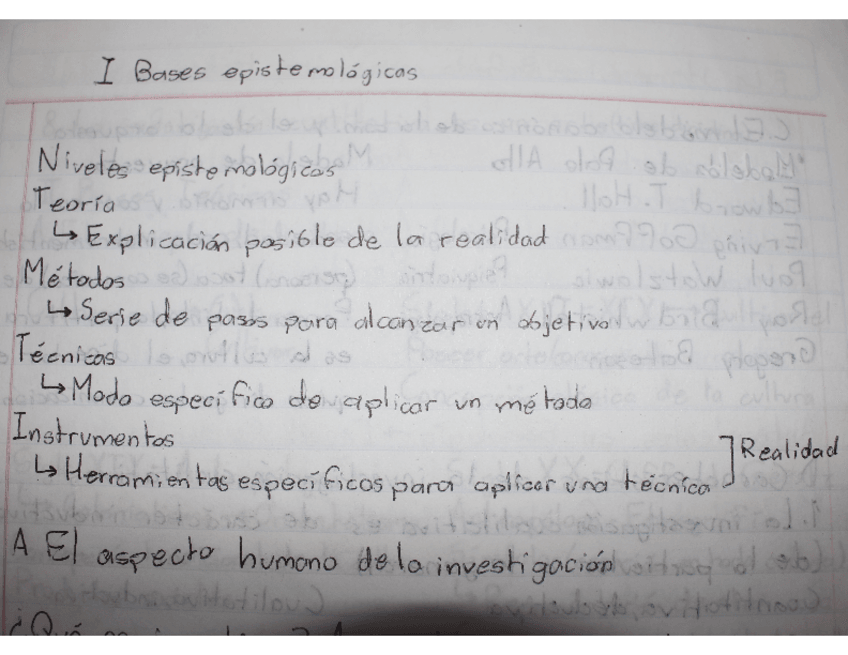 I Bases epistemológicas
Niveles epistemológicos
Teoría
↳ Explicación posible de la realidad
Métodos
↳ Serie de pasos para alcanzar un objetivo
Técnicas
↳ Modo específico de aplicar un método
Instrumentos
↳ Herramientas específicas para aplicar una técnica ] Realidad
A El aspecto humano de la investigación
¿Qué